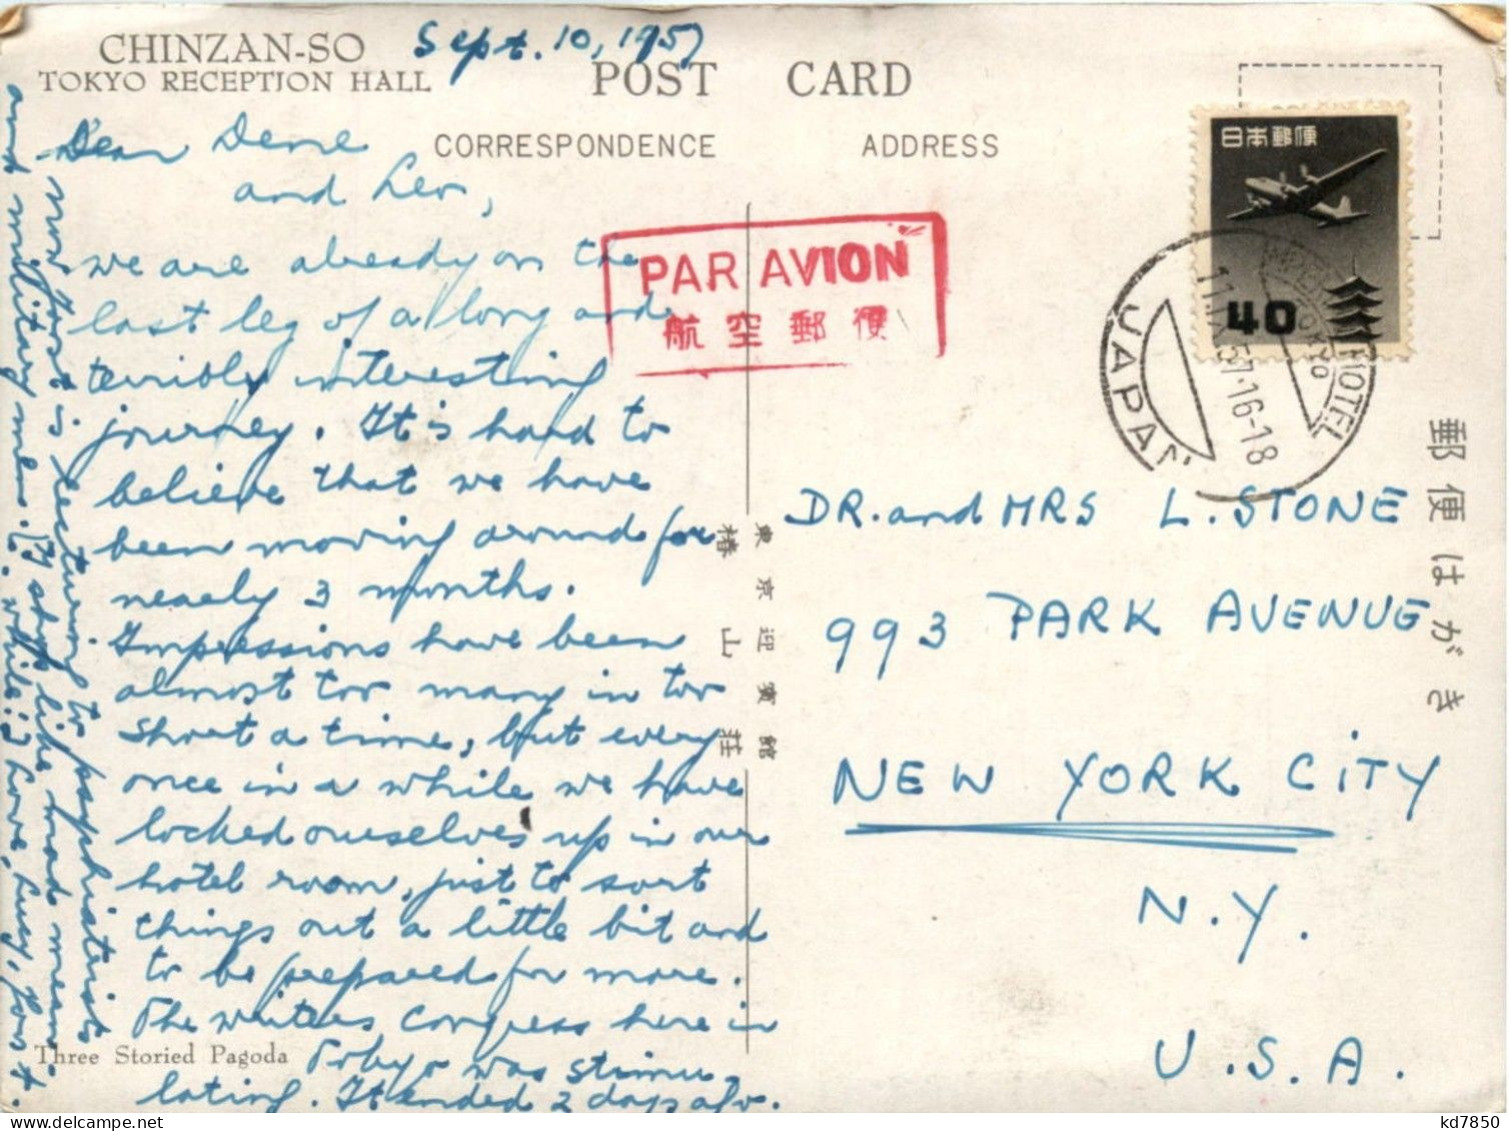 CHINZAN-SO
TOKYO RECEPTION HALL
Sept. 10, 1957
POST CARD
CORRESPONDENCE
ADDRESS
Dear
and Leo,
we are already on the
last leg of a long and
terribly interesting
journey. It is hard to
believe that we have
been moving around for
nearly 3 months.
Impressions have been
almost too many in too
short a time, but every
once in a while we have
locked ourselves up in our
hotel room, just to sort
things out a little bit and
to be prepared for more.
The writers congress here in
Tokyo was stimu-
lating. It ended 2 days ago.
now Joost is lecturing to psychiatrists
and military men.
Love, Lucy, Joost.
Three Storied Pagoda
PAR AVION
航空郵便
日本郵便
40
JAPAN
57.16-18
IMPERIAL HOTEL
TOKYO
東京迎賓館
椿山荘
郵便はがき
DR. and MRS L. STONE
993 PARK AVENUE
NEW YORK CITY
N.Y.
U.S.A.
kd7850